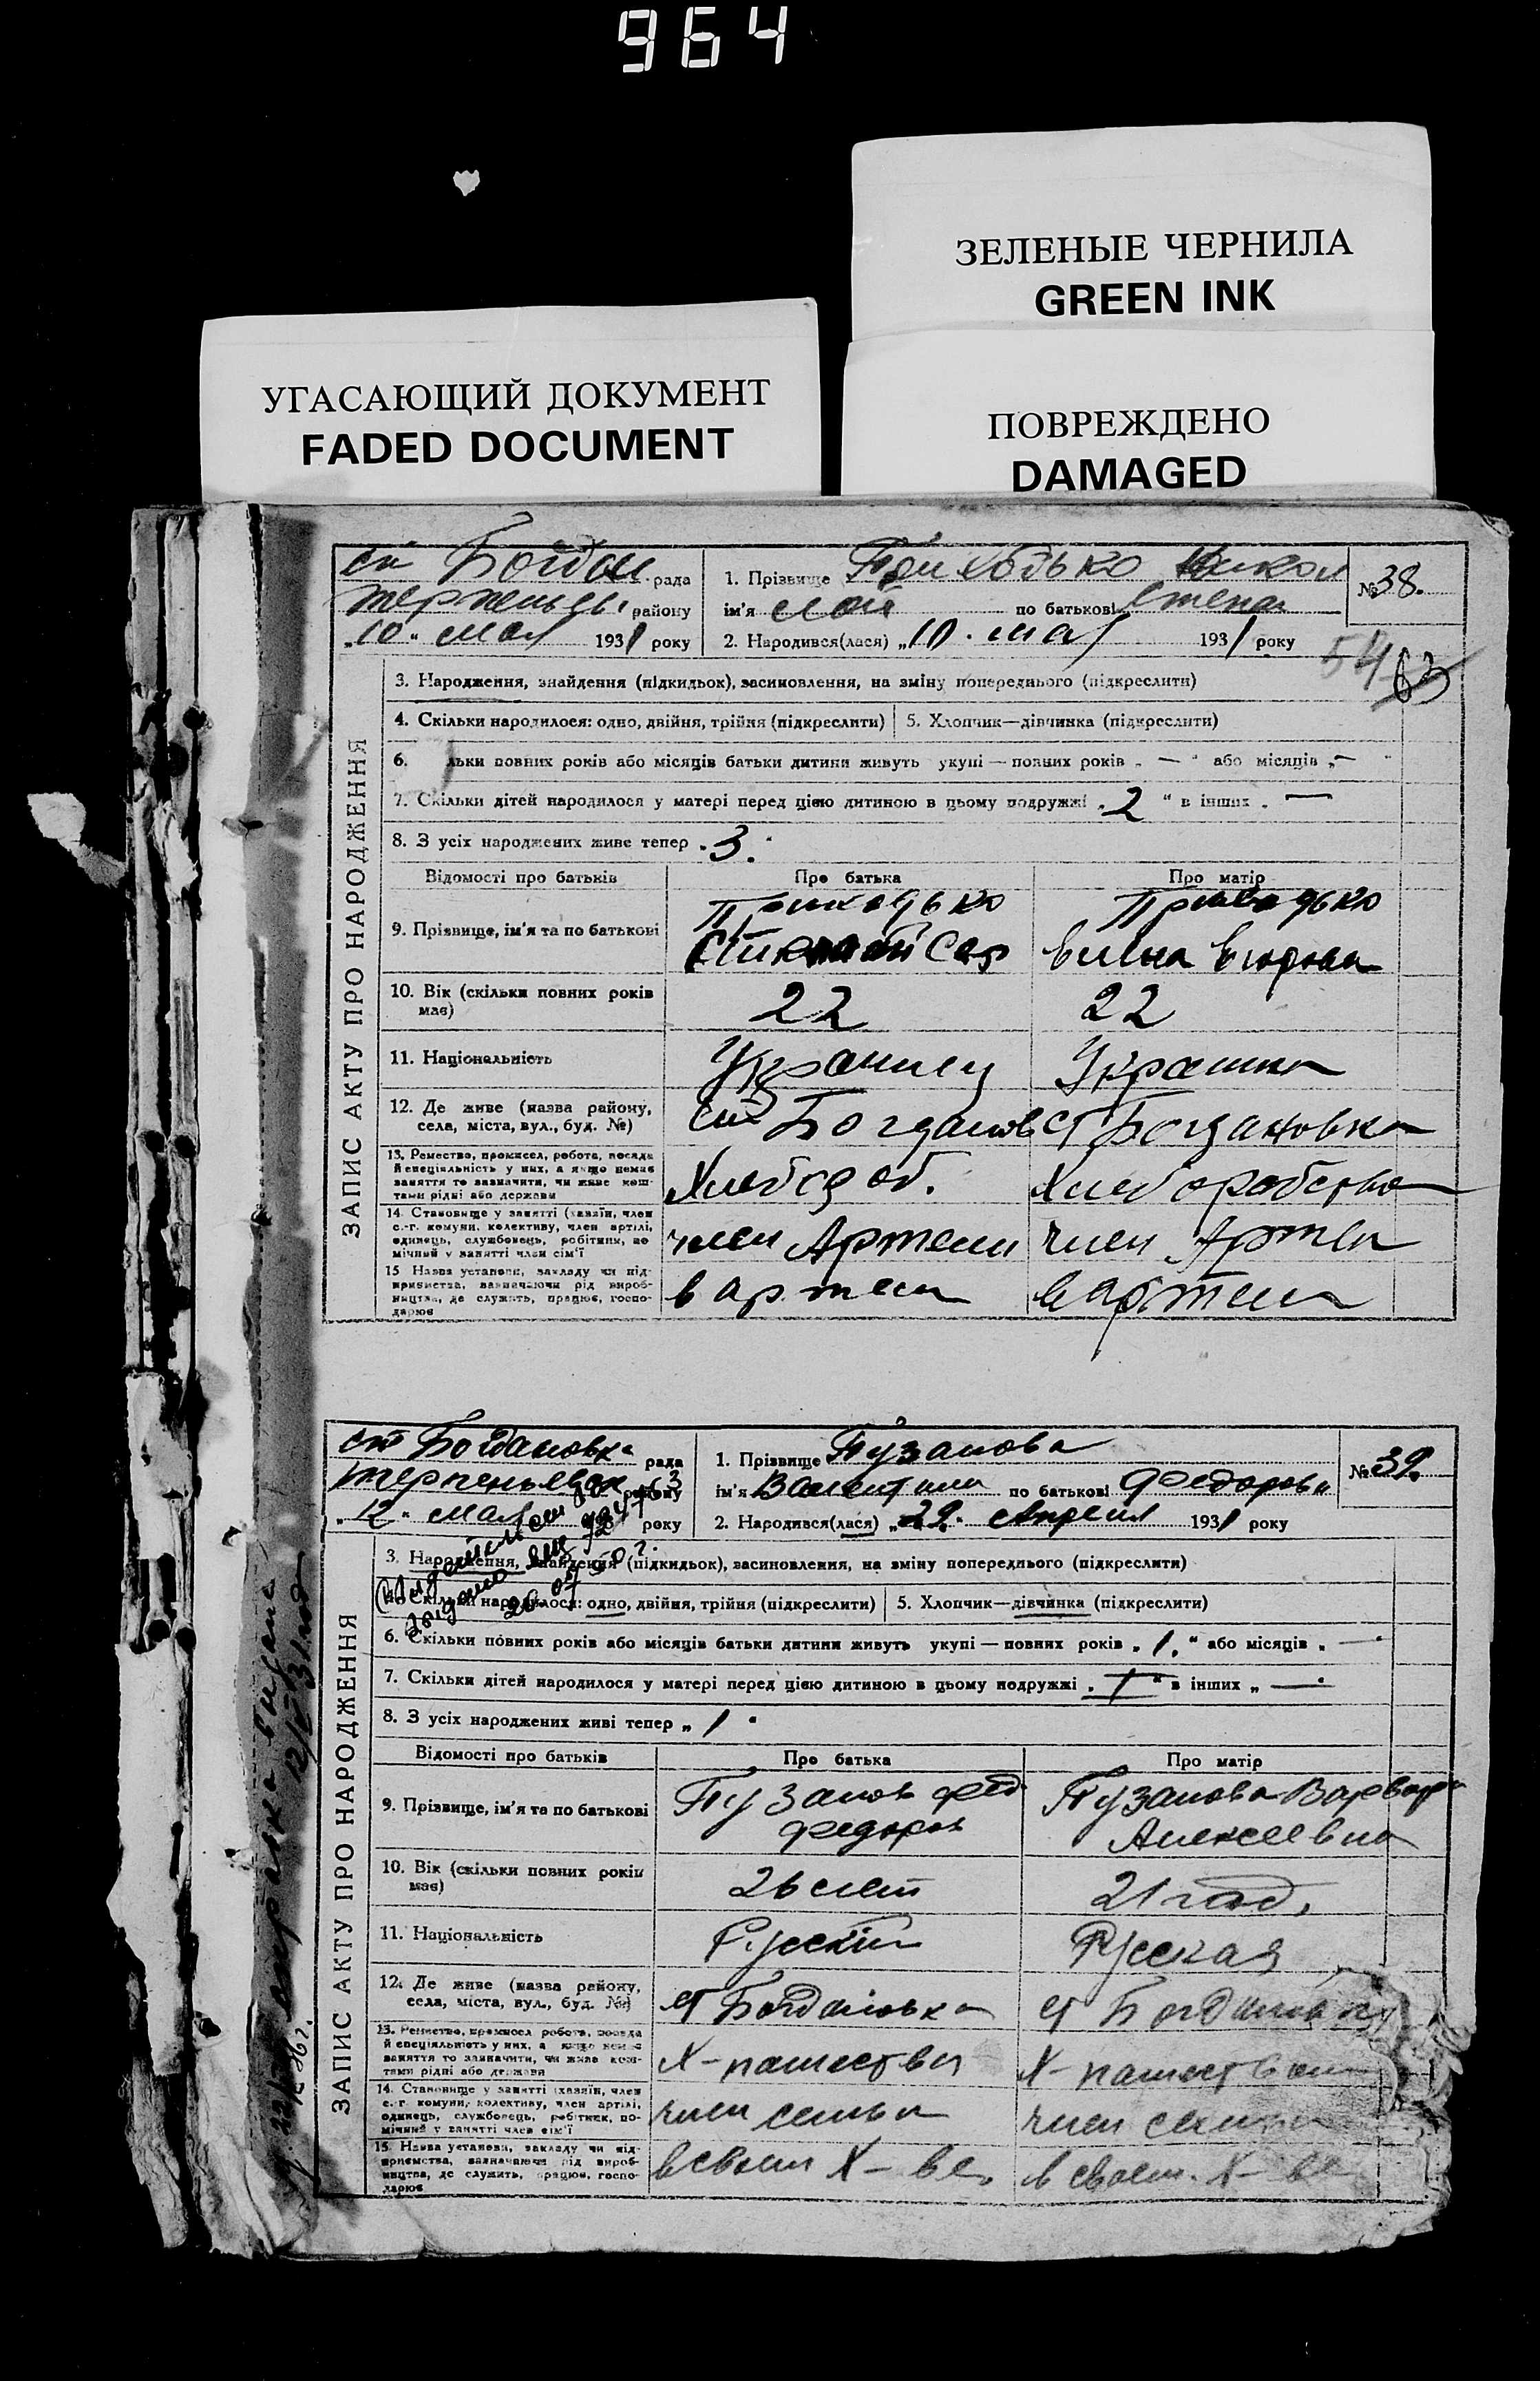 964
ЗЕЛЕНЫЕ ЧЕРНИЛА
GREEN INK
УГАСАЮЩИЙ ДОКУМЕНТ
FADED DOCUMENT
ПОВРЕЖДЕНО
DAMAGED
ЗАПИС АКТУ ПРО НАРОДЖЕННЯ
рада
району
„10“ мая 1931 року
1. Прізвище Приходько
ім'я по батькові Степан
2. Народився(лася) „10. мая 1931 року
№ 38.
54 63
3. Народження, знайдення (підкидьок), засиновлення, на зміну попереднього (підкреслити)
4. Скільки народилося: одно, двійня, трійня (підкреслити) 5. Хлопчик—дівчинка (підкреслити)
6. льки повних років або місяців батьки дитини живуть укупі — повних років „ — “ або місяців „—
7. Скільки дітей народилося у матері перед цією дитиною в цьому подружжі „2“ в інших „ —
8. З усіх народжених живе тепер „3.
Відомості про батьків Про батька Про матір
9. Прізвище, ім'я та по батькові Приходько Приходько
10. Вік (скільки повних років має) 22 22
11. Національність Украинец
12. Де живе (назва району, села, міста, вул., буд. №) ст Богданов ст Богдановка
13. Ремество, промисел, робота, посада
й спеціяльність у них, а якщо немає
заняття то зазначити, чи живе кош-
тами рідні або держави
14. Становище у занятті (хазяїн, член
с.-г. комуни, колективу, член артілі,
одинець, службовець, робітник, по
мічний у занятті член сім'ї член Артели член
15 Назва установи, закладу чи під-
приємства, зазначаючи рід вироб-
ництва, де служить, працює, госпо-
дарює в артели в артели
ЗАПИС АКТУ ПРО НАРОДЖЕННЯ
ст Богдановка рада
„12“ мая року
1. Прізвище Пузанова
ім'я Валентина по батькові Федоровн
2. Народився(лася) „29. Апреля 1931 року
№ 39.
3. Народження, знайдення (підкидьок), засиновлення, на зміну попереднього (підкреслити)
4. Скільки народилося: одно, двійня, трійня (підкреслити) 5. Хлопчик—дівчинка (підкреслити)
6. Скільки повних років або місяців батьки дитини живуть укупі — повних років „1.“ або місяців „ —
7. Скільки дітей народилося у матері перед цією дитиною в цьому подружжі „ “ в інших „ —
8. З усіх народжених живі тепер „1“
Відомості про батьків Про батька Про матір
9. Прізвище, ім'я та по батькові Пузанов Фед Пузанова Варвар
Федоров Алексеевна
10. Вік (скільки повних років має) 26 лет 21 год.
11. Національність Русский Русская
12. Де живе (назва району, села, міста, вул., буд. №) ст Богдановка ст Богдановка
13. Ремество, промисел робота, посада
й спеціяльність у них, а якщо немає
заняття то зазначити, чи живе кош-
тами рідні або держави
14. Становище у занятті (хазяїн, член
с.-г. комуни, колективу, член артілі,
одинець, службовець, робітник, по-
мічний у занятті член сім'ї член семьи член семьи
15. Назва установи, закладу чи під-
приємства, зазначаючи рід вироб-
ництва, де служить, працює, госпо-
дарює в своем Х-ве. в своем Х-ве